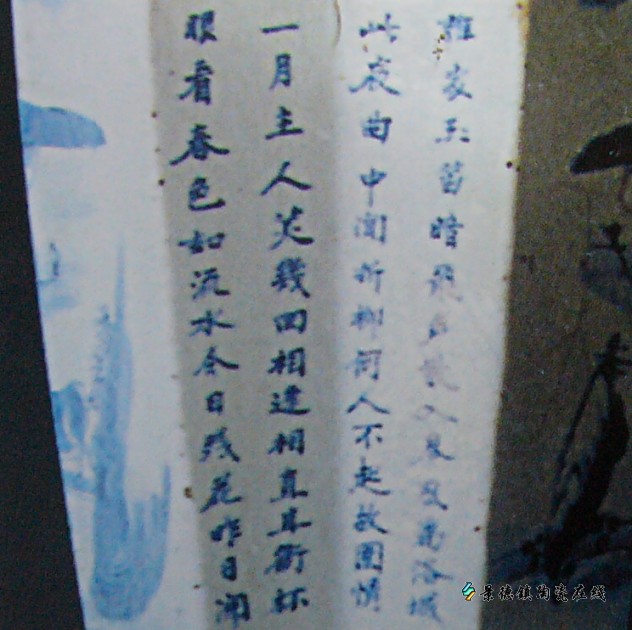 誰家玉笛暗飛声散入春風滿洛城
此夜曲中聞折柳何人不起故園情
一月主人笑幾回相逢相直且銜杯
眼看春色如流水今日残花昨日開
景德镇陶瓷在线